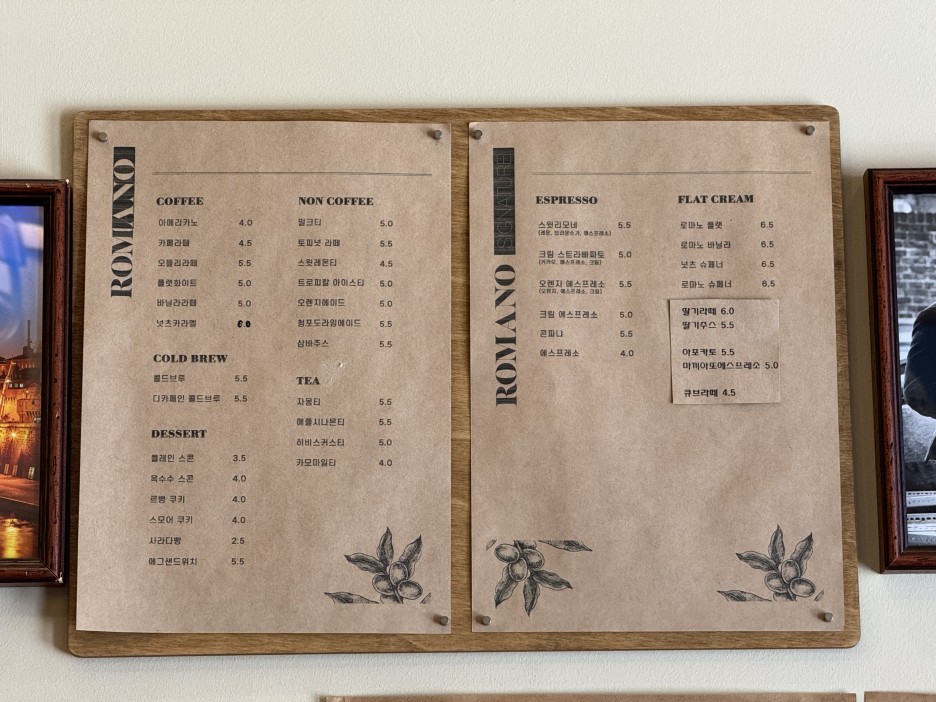 ROMANO
COFFEE
아메리카노 4.0
카페라떼 4.5
오틀리라떼 5.5
플랫화이트 5.0
바닐라라떼 5.0
넛츠카라멜 6.0
COLD BREW
콜드브루 5.5
디카페인 콜드브루 5.5
DESSERT
플레인 스콘 3.5
옥수수 스콘 4.0
르뱅 쿠키 4.0
스모어 쿠키 4.0
사라다빵 2.5
에그샌드위치 5.5
NON COFFEE
밀크티 5.0
토피넛 라떼 5.5
스윗레몬티 4.5
트로피칼 아이스티 5.0
오렌지에이드 5.0
청포도라임에이드 5.5
삼바주스 5.5
TEA
자몽티 5.5
애플시나몬티 5.5
히비스커스티 5.0
카모마일티 4.0
ROMANO SIGNATURE
ESPRESSO
스윗리모네 5.5
(레몬, 브라운슈가, 에스프레소)
크림 스트라빠짜토 5.0
(카카오, 에스프레소, 크림)
오렌지 에스프레소 5.5
(오렌지, 에스프레소, 크림)
크림 에스프레소 5.0
콘파냐 5.5
에스프레소 4.0
FLAT CREAM
로마노 플랫 6.5
로마노 바닐라 6.5
넛츠 슈페너 6.5
로마노 슈페너 6.5
딸기라떼 6.0
딸기쥬스 5.5
아포카토 5.5
마끼아또에스프레소 5.0
큐브라떼 4.5